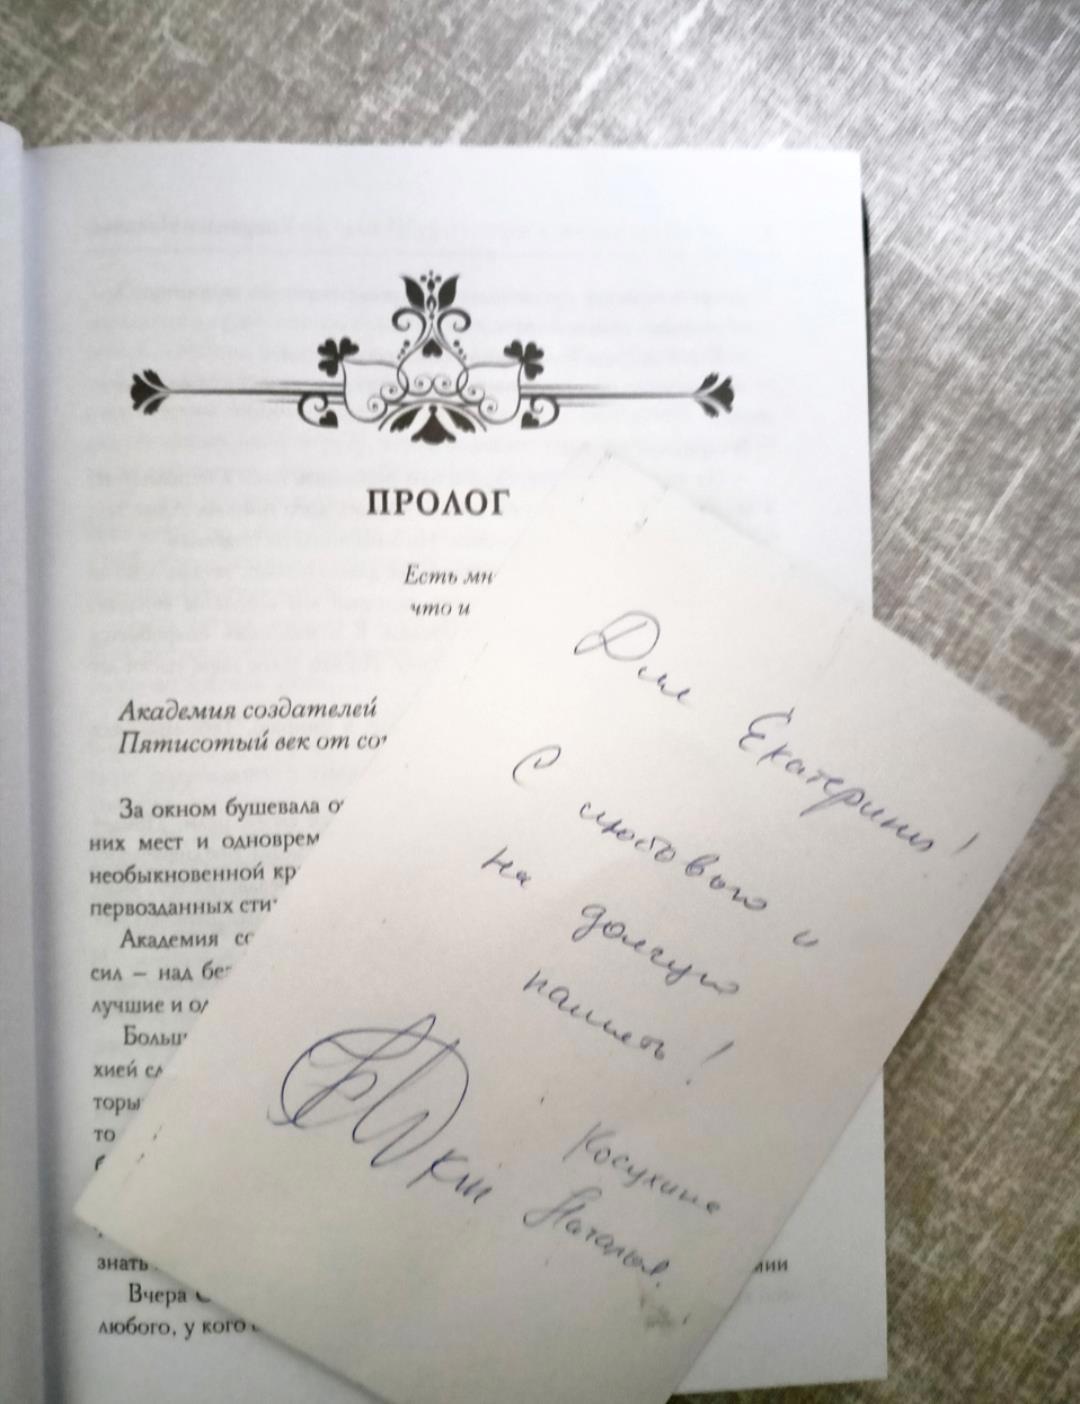 ПРОЛОГ
Есть мн
что и
Академия создателей
Пятисотый век от со
За окном бушевала
них мест и одноврем
необыкновенной кр
первозданных сти
Академия со
сил – над без
лучшие и
Больш
хией сл
торы
то
знать
мии
Вчера
любого, у кого
Для Екатерины!
С любовью и
на долгую
память!
Косухина
Наталья.